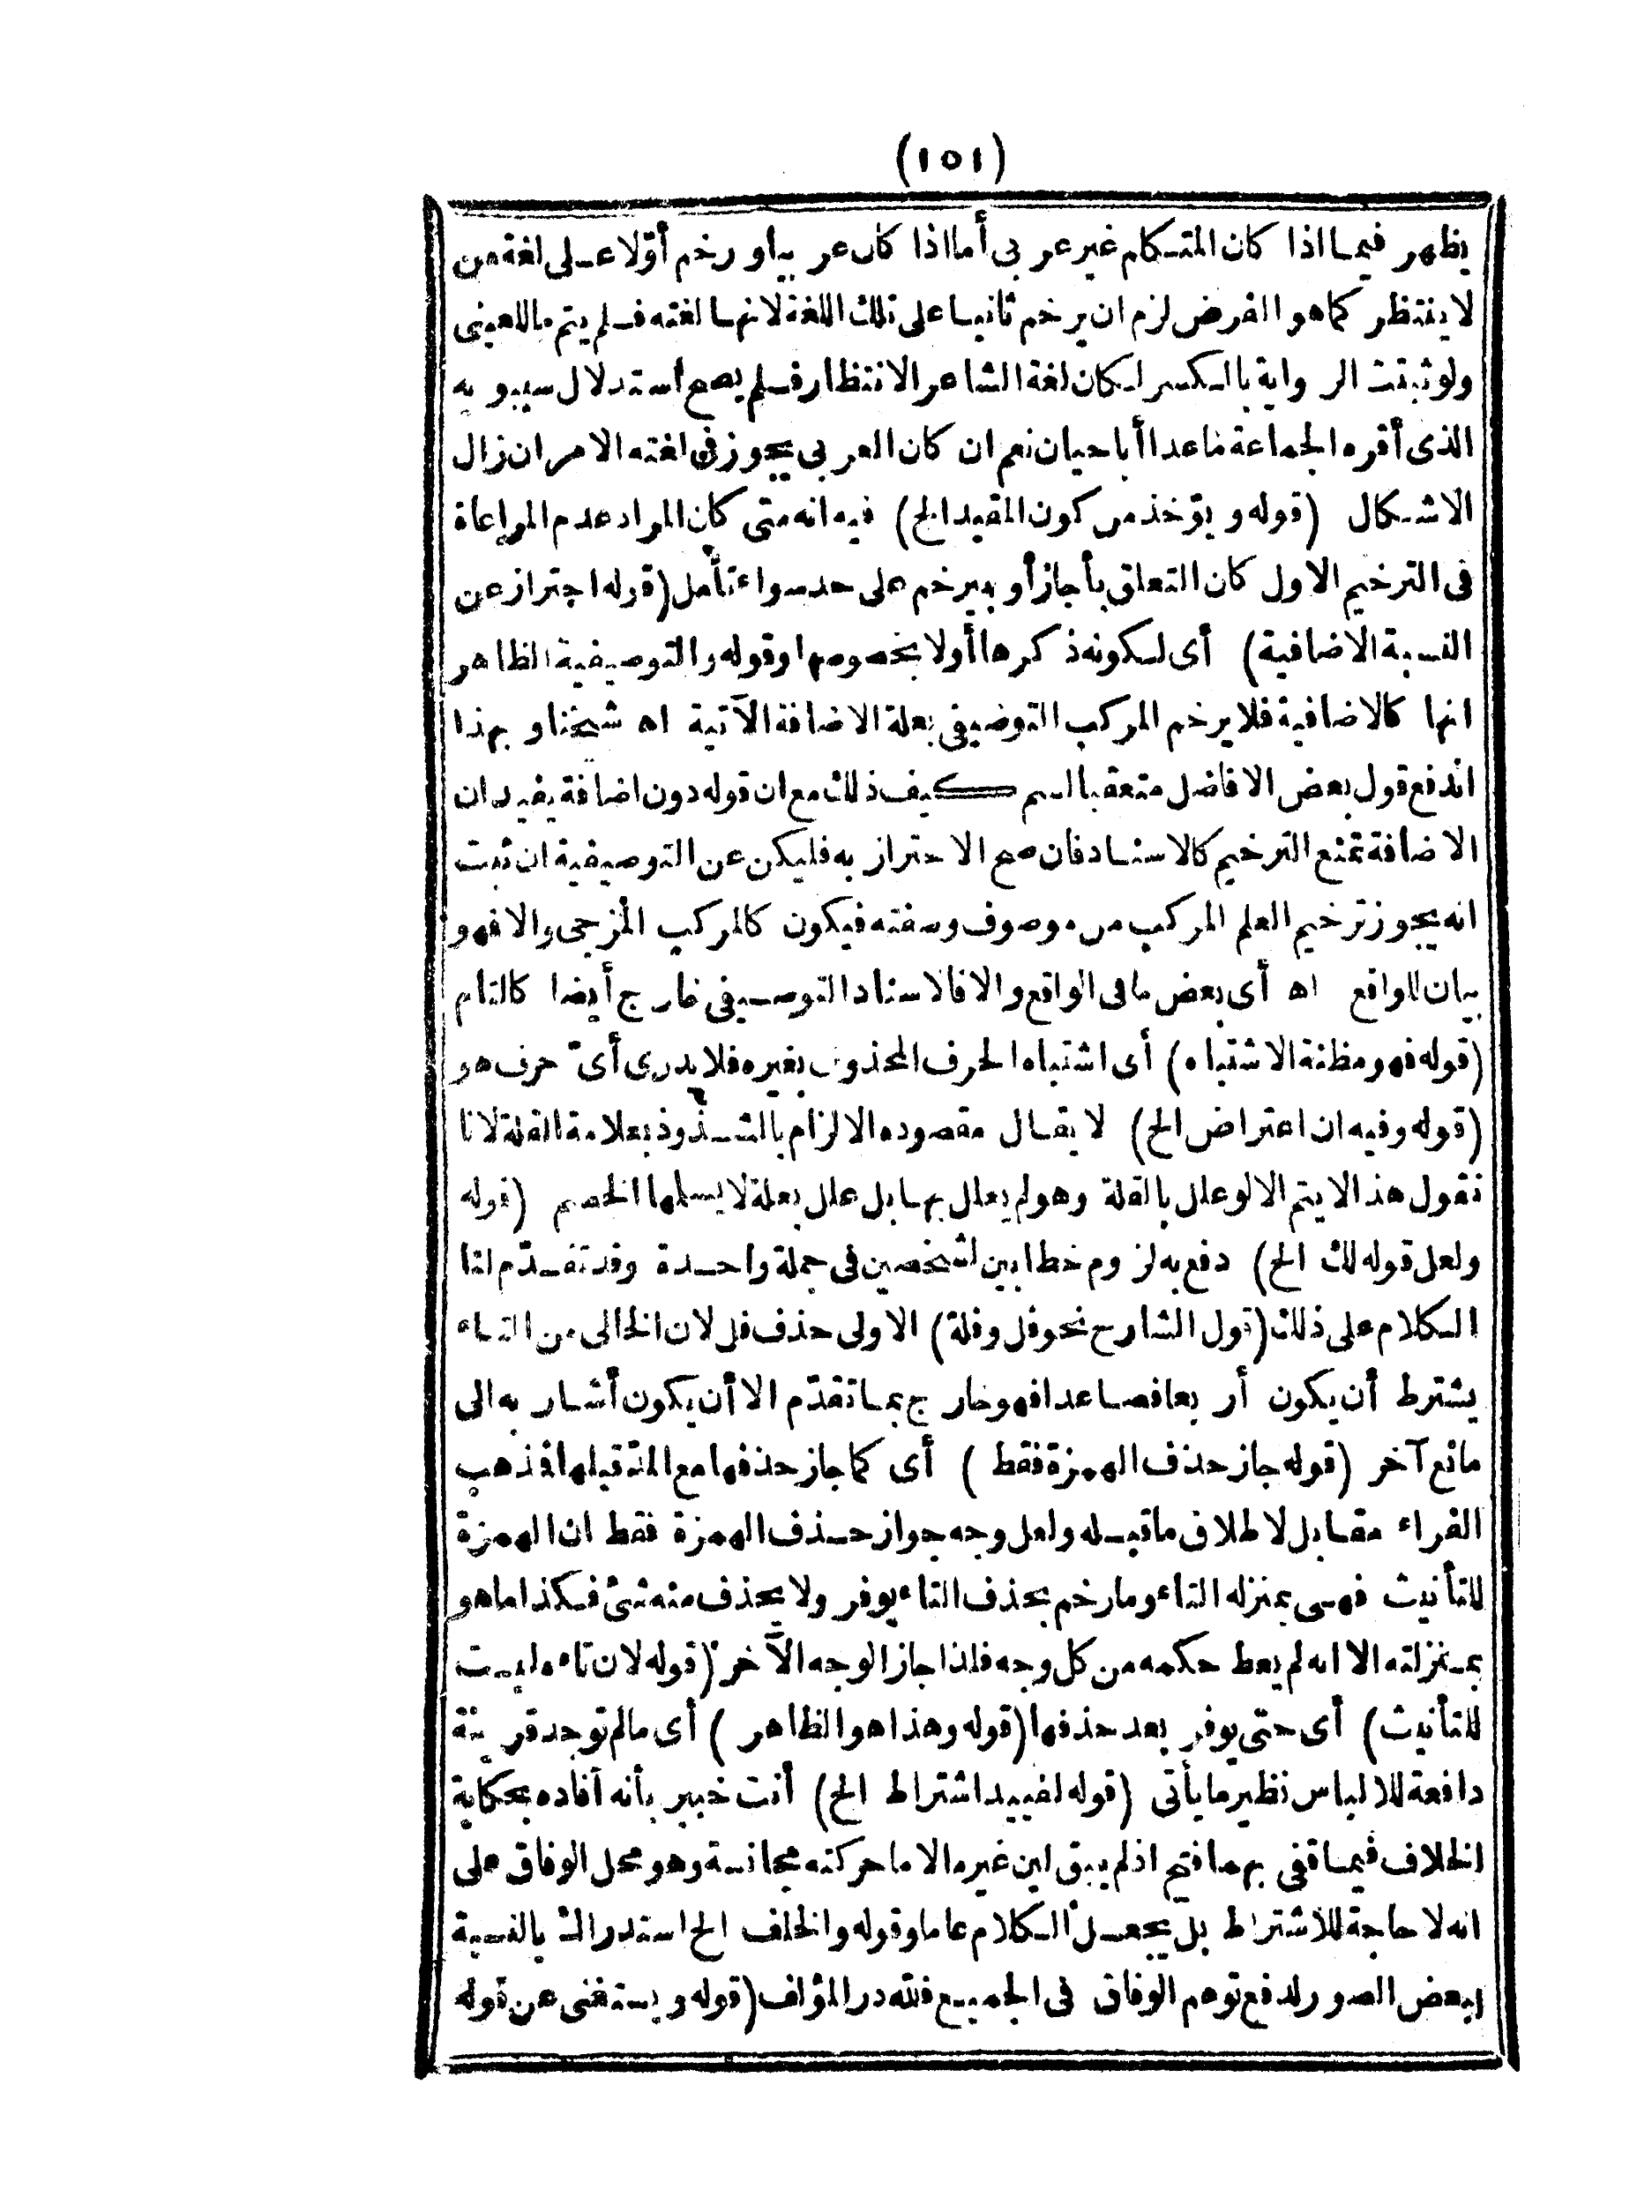 (١٥١)
يظهر فيما اذا كان المتكلم غير عربى أما اذا كان عربيا ورخم أوّلا على لغة من
لا ينتظر كما هو الفرض لزم ان يرخم ثانيا على تلك اللغة لانها لغته فلم يتم ما للعينى
ولو ثبتت الرواية بالكسر لكان لغة الشاعر الانتظار فلم يصح أستدلال سيبويه
الذى أقره الجماعة ما عدا أبا حيان نعم ان كان العربى يجوز فى لغته الامران زال
الاشكال (قوله ويؤخذ من كون المقيد الخ) فيه انه متى كان المراد عدم المراعاة
فى الترخيم الاول كان التعلق بأجاز أو بيرخم على حد سواء تأمل (قوله احتراز عن
النسبة الاضافية) أى لكونه ذكرها أولا بخصوصها وقوله والتوصيفية الظاهر
انها كالاضافية فلا يرخم المركب التوضيفى بعلة الاضافة الآتية اه شيخنا وبهذا
اندفع قول بعض الافاضل متعقبا لسم كيف ذلك مع ان قوله دون اضافة يفيد ان
الاضافة تمنع الترخيم كالاسناد فان صح الاحتراز به فليكن عن التوصيفية ان ثبت
انه يجوز ترخيم العلم المركب من موصوف وصفته فيكون كالمركب المزجى والا فهو
بيان للواقع اه أى بعض ما فى الواقع والا فالاسناد التوصيفى خارج أيضا كالتام
(قوله فهو مظنة الاشتباه) أى اشتباه الحرف المحذوف بغيره فلا يدرى أىّ حرف هو
(قوله وفيه ان اعتراض الخ) لا يقال مقصوده الالزام بالشذوذ بعلامة القلة لانا
نقول هذا لا يتم الا لو علل بالقلة وهو لم يعلل بها بل علل بعلة لا يسلمها الخصم (قوله
ولعل قوله لك الخ) دفع به لزوم خطابين لشخصين فى جملة واحدة وقد تقدّم لنا
الكلام على ذلك (قول الشارح نحو فل وفلة) الاولى حذف فل لان الخالى من التاء
يشترط أن يكون أربعا فصاعدا فهو خارج بما تقدّم الا أن يكون أشار به الى
مانع آخر (قوله جاز حذف الهمزة فقط) أى كما جاز حذفها مع المدّ قبلها فذهب
الفراء مقابل لاطلاق ما قبله ولعل وجه جواز حذف الهمزة فقط ان الهمزة
للتأنيث فهى بمنزله التاء وما رخم بحذف التاء يوفر ولا يحذف منه شئ فكذا ما هو
بمنزلته الا انه لم يعط حكمه من كل وجه فلذا جاز الوجه الآخر (قوله لان تاءه ليست
للتأنيث) أى حتى يوفر بعد حذفها (قوله وهذا هو الظاهر) أى ما لم توجد قرينة
دافعة للالباس نظير ما يأتى (قوله لفييد اشتراط الخ) أنت خبير بأنه أفاده بحكاية
الخلاف فيما قفى بهما فتح اذ لم يبق لين غيره الا ما حركته مجانسة وهو محل الوفاق على
انه لا حاجة للاشتراط بل يجعل الكلام عاما وقوله والخلف الخ استدراك بالنسبة
لبعض الصور لدفع توهم الوفاق فى الجميع فلله در المؤلف (قوله ويستغنى عن قوله